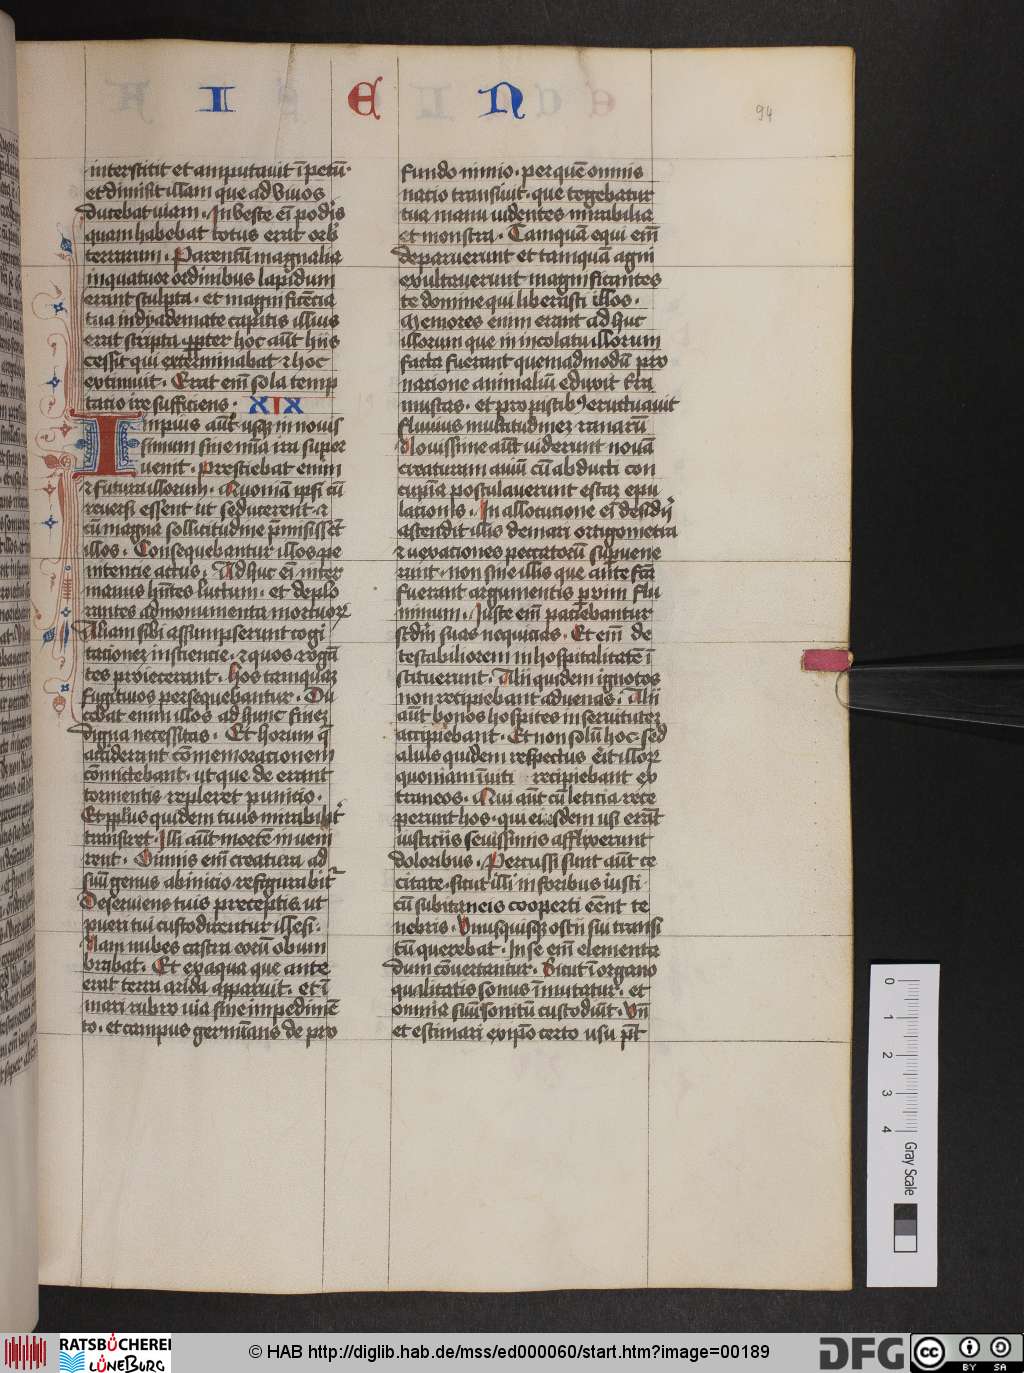 I E N
94
interstitit et amputauit ĩpetũ·
et dimisit illam que ad viuos
ducebat uiam . In veste eĩ poďis
quam habebat totus erat orbꝰ
terrarum . Parentũ magnalia
in quatuor ordinibus lapidum
erant sculpta · et magnificẽcia
tua in dyademate capitis illius
erat scripta . ꝓpter hoc aũt hiis
cessit qui exterminabat ⁊ hoc
extimuit . Erat em̃ sola temp
tatio ire sufficiens · XIX
Impius aũt usqꝫ in nouis
simum sine mĩa ira super
uenit . Presciebat enim
⁊ futura illorum . Quoniã ipsi cũ
reuersi essent ut seducerent · ⁊
cũ magna sollicitudine p̃misissẽt
illos . Consequebantur illos pe
nitencie actus . Adhuc eĩ inter
manus hñtes luctum · et deplo
rantes ad monumenta mortuoꝝ
Aliam sibi assumpserunt cogi
tationez insciencie · ⁊ quos rogã
tes proiecerant . hos tamquaꝫ
fugitiuos persequebantur . Du
cebat enim illos ad hunc finez
digna necessitas . Et horum q̃
acciderant cõmemorationem
cõmictebant . ut que de erant
tormentis repleret punicio .
Et ppl̃us quidem tuus mirabiliť
transiret . Illi aũt mortẽ inueni
rent . Omnis em̃ creatura ad
suũ genus ab inicio refigurabiť
Deseruiens tuis preceptis ut
pueri tui custodirentur illesi .
Nam nubes castra eorũ obum
brabat . Et ex aqua que ante
erat terra arida apparuit . et ĩ
mari rubro uia sine impedimẽ
to . et campus germinans de pro
fundo nimio · per quẽ omnis
natio transiuit · que tegebatur
tua manu uidentes mirabilia
et monstra . Tamquã equi em̃
depauerunt et tamquã agni
exultauerunt magnificantes
te domine qui liberasti illos .
Memores enim erant ad huc
illorum que in incolatu illorum
facta fuerant quemadmodũ pro
natione animaliũ eduxit t̃ra
muscas . et pro piscibꝰ eructuauit
fluuius multitudinez ranarũ
Nouissime aũt uiderunt nouã
creaturam auiũ cũ abducti con
cupĩa postulauerunt escaꝫ epu
lationis . In allocutione eĩ desidꝭ
ascendit illis de mari ortigometra
⁊ uexationes peccatorũ supuene
runt · non sine illis que ante fc̃a
fuerant argumentis p uim flu
minum . Juste em̃ paciebantur
scďm suas nequicias . Et em̃ de
testabiliorem inhospitalitatẽ ĩ
stituerunt . Alii quidem ignotos
non recipiebant aduenas . Alii
aũt bonos hospites in seruitutez
accipiebant . Et non solũ hoc · sed
alius quidem respectus erit illoꝝ
quoniam ĩuiti recipiebant ex
traneos . Qui aũt cũ leticia rece
perunt hos · qui eisdem usi erãt
iusticiis seuissimis afflixerunt
doloribus . Percussi sunt aũt ce
citate . sicut illi in foribus iusti
cũ subitaneis cooperti eẽnt te
nebris . Vnusquisqꝫ ostii sui transi
tũ querebat . In se em̃ elementa
dum cõuertantur . Sicut ĩ organo
qualitatis sonus ĩmutatur . et
omnia suũ sonitũ custodiũt . Vñ
et estimari ex ipso certo uisu p̃t
0 1 2 3 4 Gray Scale
RATSBÜCHEREI
LÜNEBURG
© HAB http://diglib.hab.de/mss/ed000060/start.htm?image=00189
DFG
cc BY SA